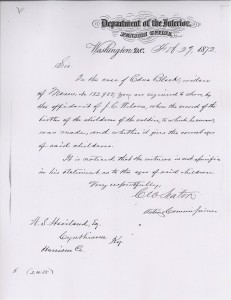 Department of the Interior,
PENSION OFFICE,
Washington, D.C. Feb 29, 1872
Sir
In the case of widow
of No. 132.985, you are required to show by
the affidavit of J. C. Wilson, when the record of the
birth of the children of the soldier, to which
was made, and whether it gives the correct ages
of said children.
It is noticed that the witness is not specific
in his statement as to the ages of said children.
Very respectfully,
Acting Commissioner
Esq.
Cynthiana
Harrison Co. Ky.